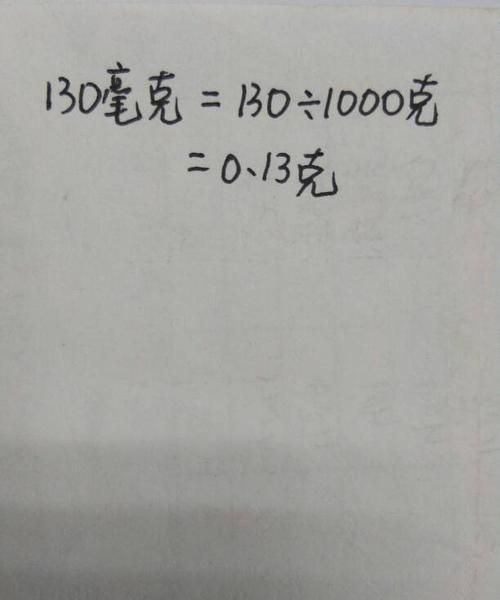 130毫克=130÷1000克
=0.13克